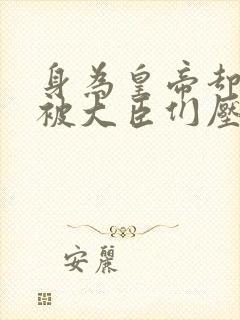 身為皇帝却
被大臣们壓
安麗